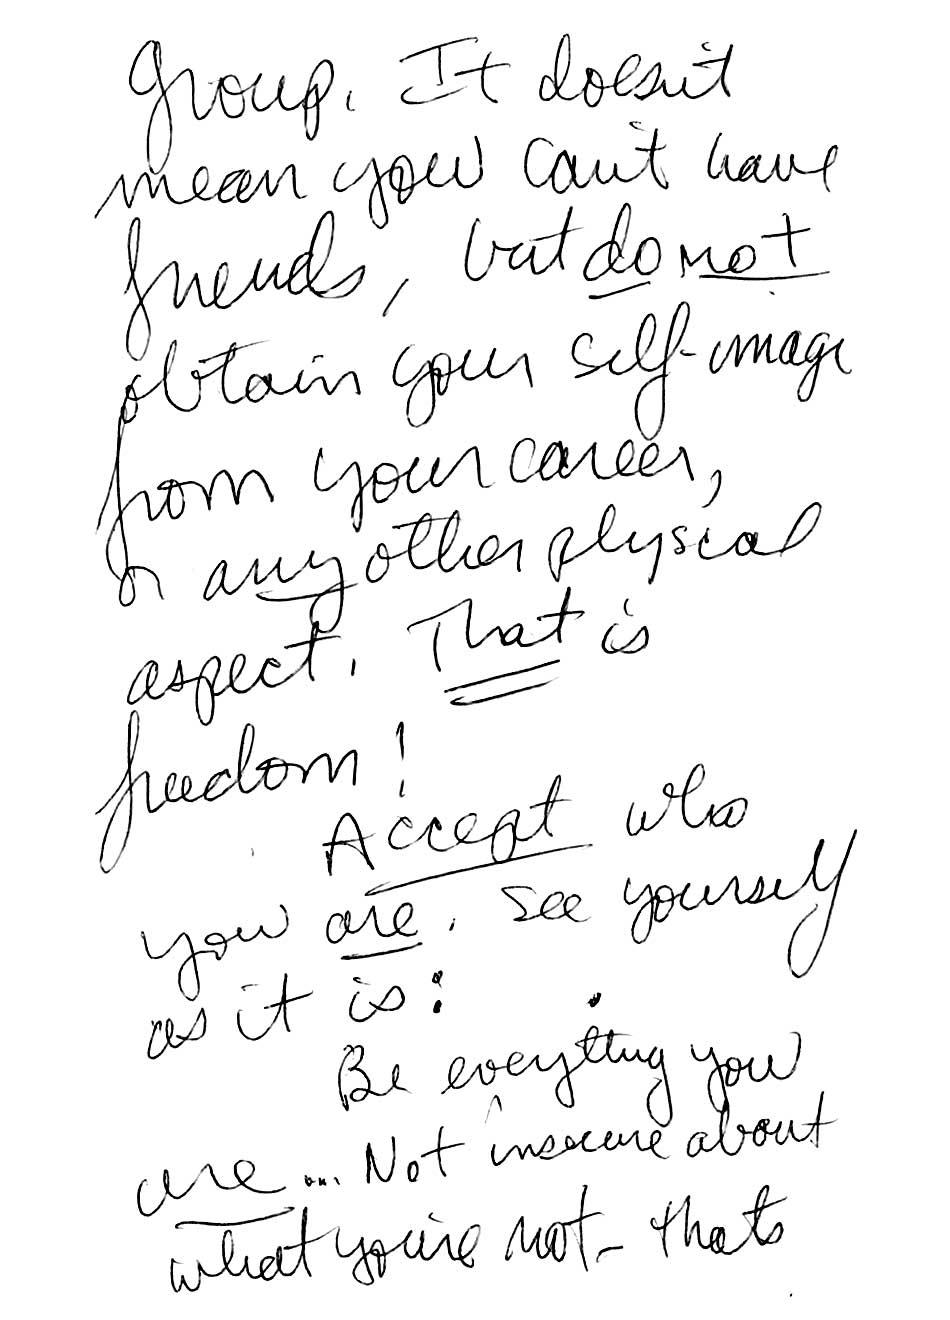 group. It doesn't
mean you can't have
friends, but do not
obtain your self-image
from your career,
or any other physical
aspect. That is
freedom!
Accept who
you are. See yourself
as it is:
Be everything you
are... Not insecure about
what you're not - thats